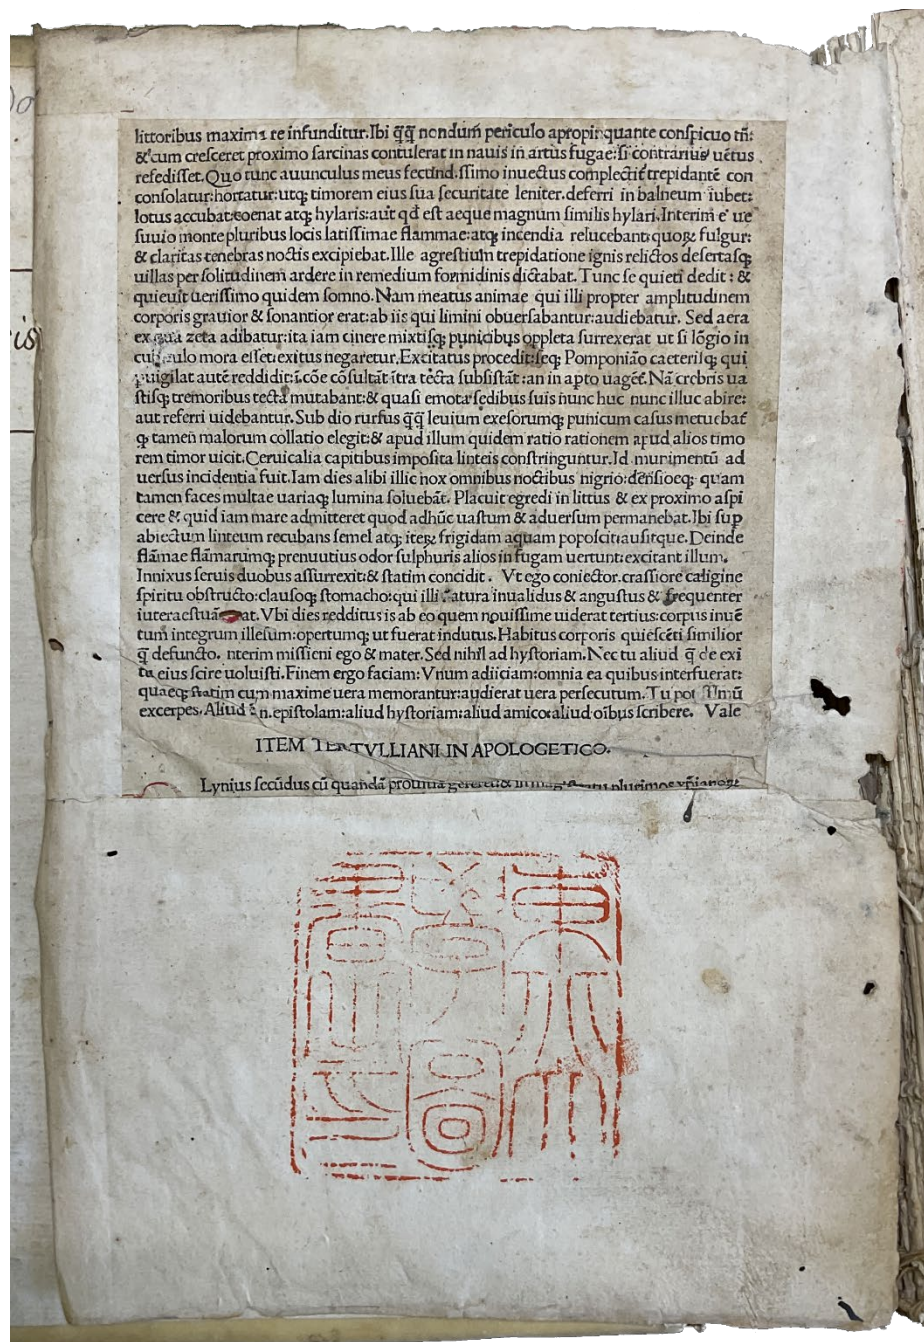 littoribus maxima re infunditur. Ibi q̄q̄ nondum periculo apropinquante conspicuo tn̄:
& cum cresceret proximo sarcinas contulerat in nauis in artus fugae: si contrarius uētus
resedisset. Quo tunc auunculus meus secund.ssimo inuectus complectiť trepidantē con
consolatur: hortatur: utq; timorem eius sua securitate leniter. deferri in balneum iubet:
lotus accubat: coenat atq; hylaris: aut qđ est aeque magnum similis hylari. Interim e ue
suuio monte pluribus locis latissimae flammae: atq; incendia relucebant: quoꝝ fulgur:
& claritas tenebras noctis excipiebat. Ille agrestium trepidatione ignis relictos desertasq;
uillas per solitudinem ardere in remedium formidinis dictabat. Tunc se quieti dedit: &
quieuit uerissimo quidem somno. Nam meatus animae qui illi propter amplitudinem
corporis grauior & sonantior erat: ab iis qui limini obuersabantur: audiebatur. Sed aera
ex qua zeta adibatur: ita iam cinere mixtisq; punicibus oppleta surrexerat ut si lōgio in
mora esset: exitus negaretur. Excitatus procedit: seq; Pomponiāo caeterisq; qui
puigilat autē reddidit: ī cōe cōsultāt ītra tecta subsistāt: an in apto uageť. Nā crebris ua
stisq; tremoribus tecta mutabant: & quasi emota sedibus suis nunc huc nunc illuc abire:
aut referri uidebantur. Sub dio rursus q̄q̄ leuium exesorumq; punicum casus metuebať
q; tamen malorum collatio elegit: & apud illum quidem ratio rationem apud alios timo
rem timor uicit. Ceruicalia capitibus imposita linteis constringuntur. Id munimentū ad
uersus incidentia fuit. Iam dies alibi illic nox omnibus noctibus nigrio: densioeq; quam
tamen faces multae uariaq; lumina soluebāt. Placuit egredi in littus & ex proximo aspi
cere & quid iam mare admitteret quod adhuc uastum & aduersum permanebat. Ibi sup
abiectum linteum recubans semel atq; iteꝝ frigidam aquam poposcit: ausitque. Deinde
flāmae flāmarumq; prenuutius odor sulphuris alios in fugam uertunt: excitant illum.
Innixus seruis duobus assurrexit: & statim concidit. Vt ego coniector. crassiore caligine
spiritu obstructo: clausoq; stomacho: qui illi natura inualidus & angustus & frequenter
iuteraestuā at. Vbi dies redditus is ab eo quem nouissime uiderat tertius: corpus inuē
tum integrum illesum: opertumq; ut fuerat indutus. Habitus corporis quiescēti similior
q̄ defuncto. nterim misseni ego & mater. Sed nihil ad hystoriam. Nec tu aliud q̄ de exi
tu eius scire uoluisti. Finem ergo faciam: Vnum adiiciam: omnia ea quibus interfuerat:
quaeq; statim cum maxime uera memorantur: audierat uera persecutum. Tu pot
excerpes. Aliud ē n. epistolam: aliud hystoriam: aliud amico: aliud oībus scribere. Vale
ITEM TERTVLLIANI IN APOLOGETICO.
Lynius secūdus cū quandā prouīciā